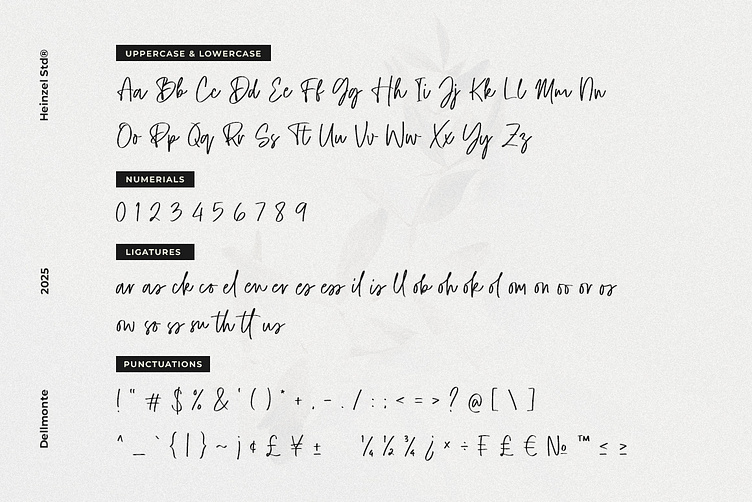 Heinzel Std®
2025
Dellmonte
UPPERCASE & LOWERCASE
Aa Bb Cc Dd Ee Ff Gg Hh Ii Jj Kk Ll Mm Nn
Oo Pp Qq Rr Ss Tt Uu Vv Ww Xx Yy Zz
NUMERIALS
0 1 2 3 4 5 6 7 8 9
LIGATURES
ar as ck co el en er es ess il is ll ob oh ok ol om on oo or os
ow so ss su th tt us
PUNCTUATIONS
! " # $ % & ' ( ) * + , - . / : ; < = > ? @ [ \ ]
^ _ ` { | } ~ ¡ ¢ £ ¥ ± ¼ ½ ¾ ¿ × ÷ ₣ £ € № ™ ≤ ≥